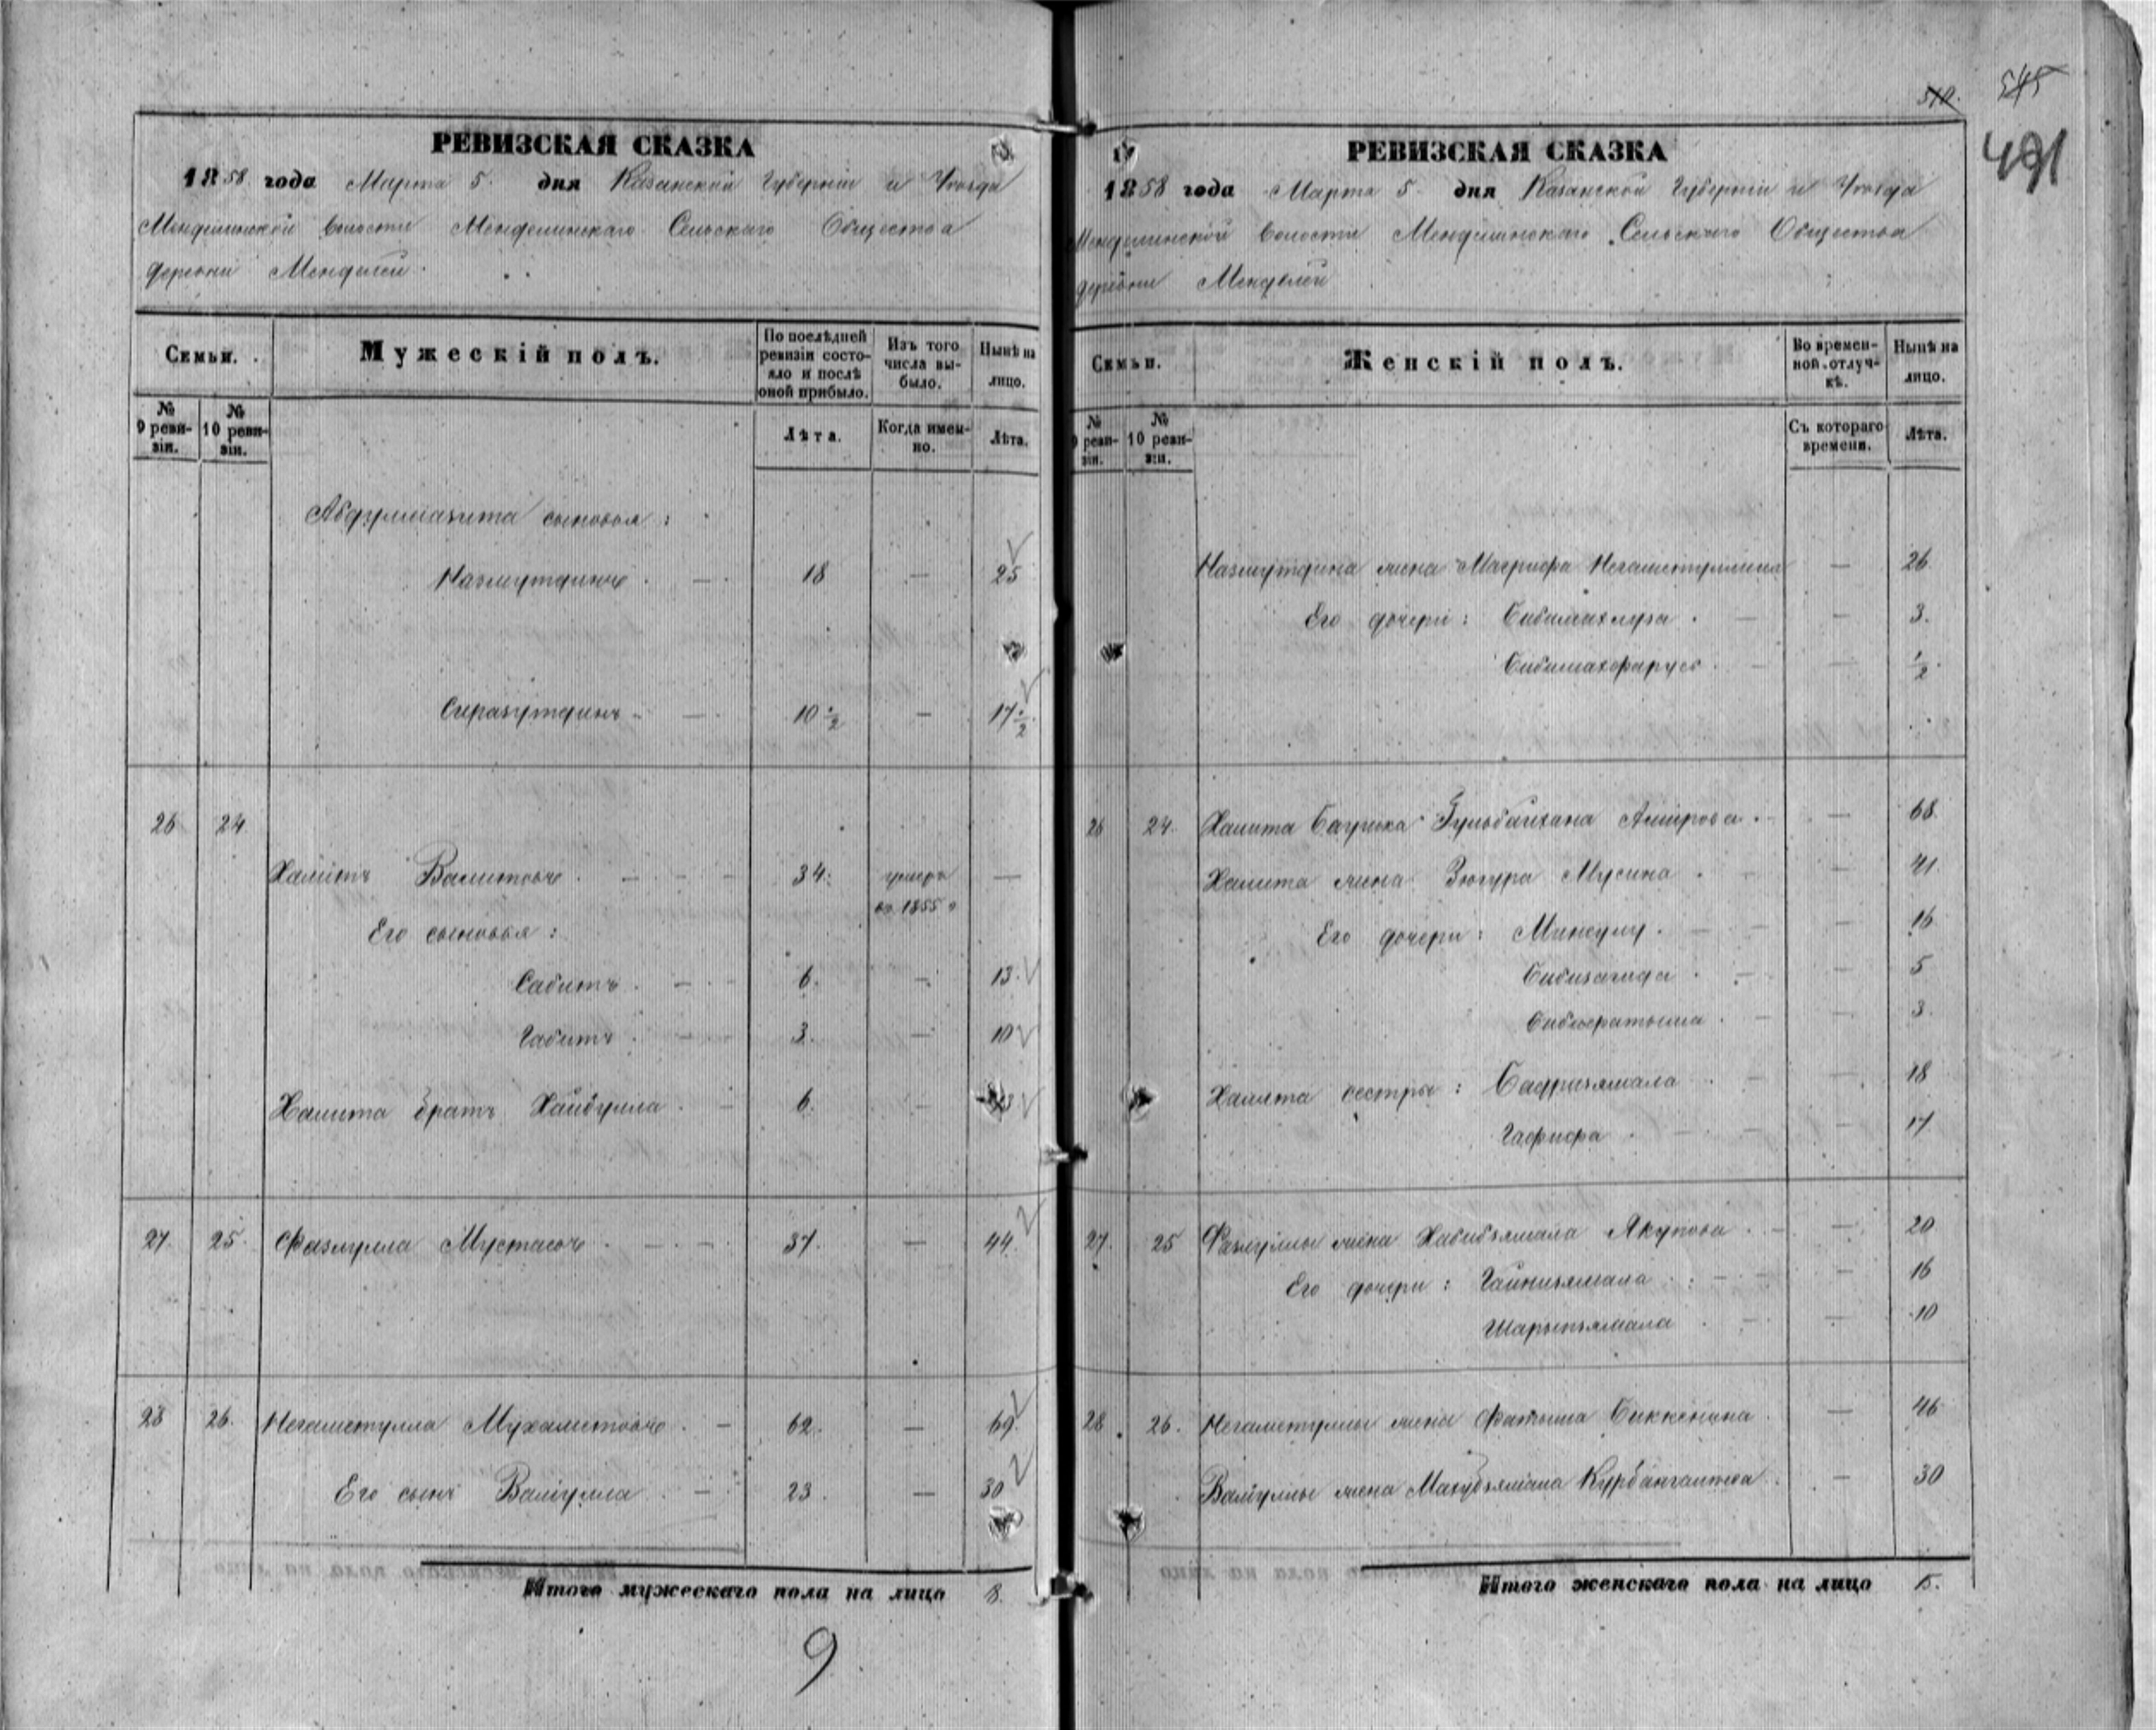 510.
545
491
РЕВИЗСКАЯ СКАЗКА
1858 года Марта 5. дня Казанской Губерніи и Уѣзда
Менделинской Волости Менделинскаго Сельскаго Общества
деревни Менделей.
Семьи.
Мужескій полъ.
По послѣдней ревизіи состояло и послѣ оной прибыло.
Изъ того числа выбыло.
Нынѣ на лицо.
№ 9 ревизіи.
№ 10 ревизіи.
Лѣта.
Когда именно.
Лѣта.
Абдулгазита сыновья:
Назмутдинъ . — 18 — 25
Сиразутдинъ — 10 1/2 — 17 1/2
26 24
Халитъ Валитовъ . — 34. умеръ въ 1855 г. —
Его сыновья:
Сабитъ . — 6. — 13.
Габитъ . — 3. — 10
Халита братъ Хайбулла . — 6. — 13
27. 25. Фазлулла Мустаевъ . — 37. — 44.
28 26. Негаметулла Мухаметовъ . — 62. — 69.
Его сынъ Валиулла . — 23. — 30
Итого мужескаго пола на лицо 8.
9
РЕВИЗСКАЯ СКАЗКА
1858 года Марта 5 дня Казанской Губерніи и Уѣзда
Менделинской Волости Менделинскаго Сельскаго Общества
деревни Менделей
Семьи.
Женскій полъ.
Во временной отлучкѣ.
Нынѣ на лицо.
№ 9 ревизіи.
№ 10 ревизіи.
Съ котораго времени.
Лѣта.
Назмутдина жена Магрифа Негаметуллина — 26
Его дочери: — 3.
— 1/2.
26 24. Халита Гульбайхана Амирова . — 68.
Халита жена Зюгура Мусина . — 41.
Его дочери: Минсулу . — 16
Бибизагида . — 5
Бибифатыма . — 3.
Халита сестры: Бадризямала . — 18
Гафифа . — 17
27. 25 Фазлуллы жена Хабибзямала Якупова . — 20
Его дочери: Гайнизямала . — 16
Шарыпзямала . — 10
28. 26. Негаметуллы жена Фатыма Биккенина . — 46
Валиуллы жена Махубзямала Курбангалеева . — 30
Итого женскаго пола на лицо 15.